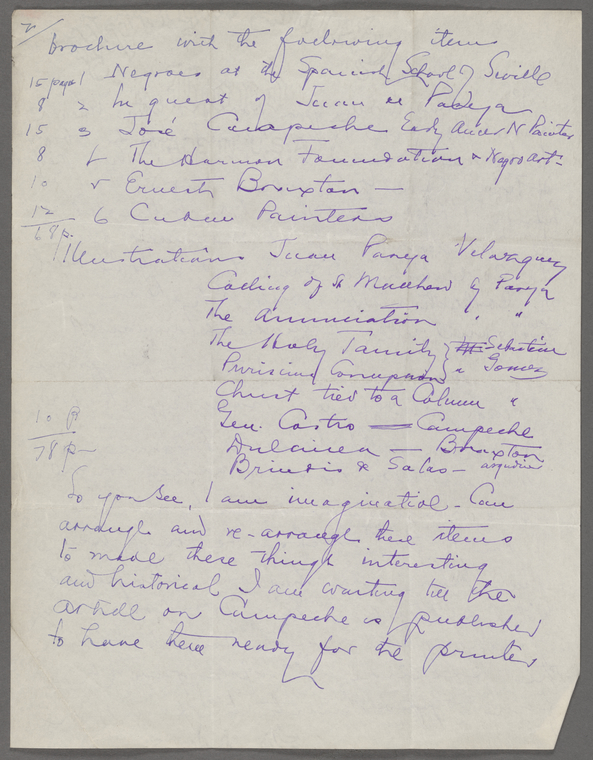 2
Brochure with the following items
15 pages 1 Negroes at the Spanish School of Seville
8 2 In quest of Juan de Pareja
15 3 José Campeche Early Amer N Painter
8 4 The Harmon Foundation & Negro art
10 5 Ernest Braxton —
12 6 Cuban Painters
68 p.
Illustrations Juan Pareja Velasquez
Calling of St Matthew by Pareja
The Anunciation " "
The Holy Family Sebastian
Conception " Gomez
Christ tied to a Column "
10 p
Gen. Castro — Campeche
78 p
Dulcinea — Braxton
Brindis de Salas —
So you see, I am imaginatiol - Can
arrange and re-arrange these items
to made these things interesting
and historical I am waiting till the
article on Campeche is published
to have these ready for the printer